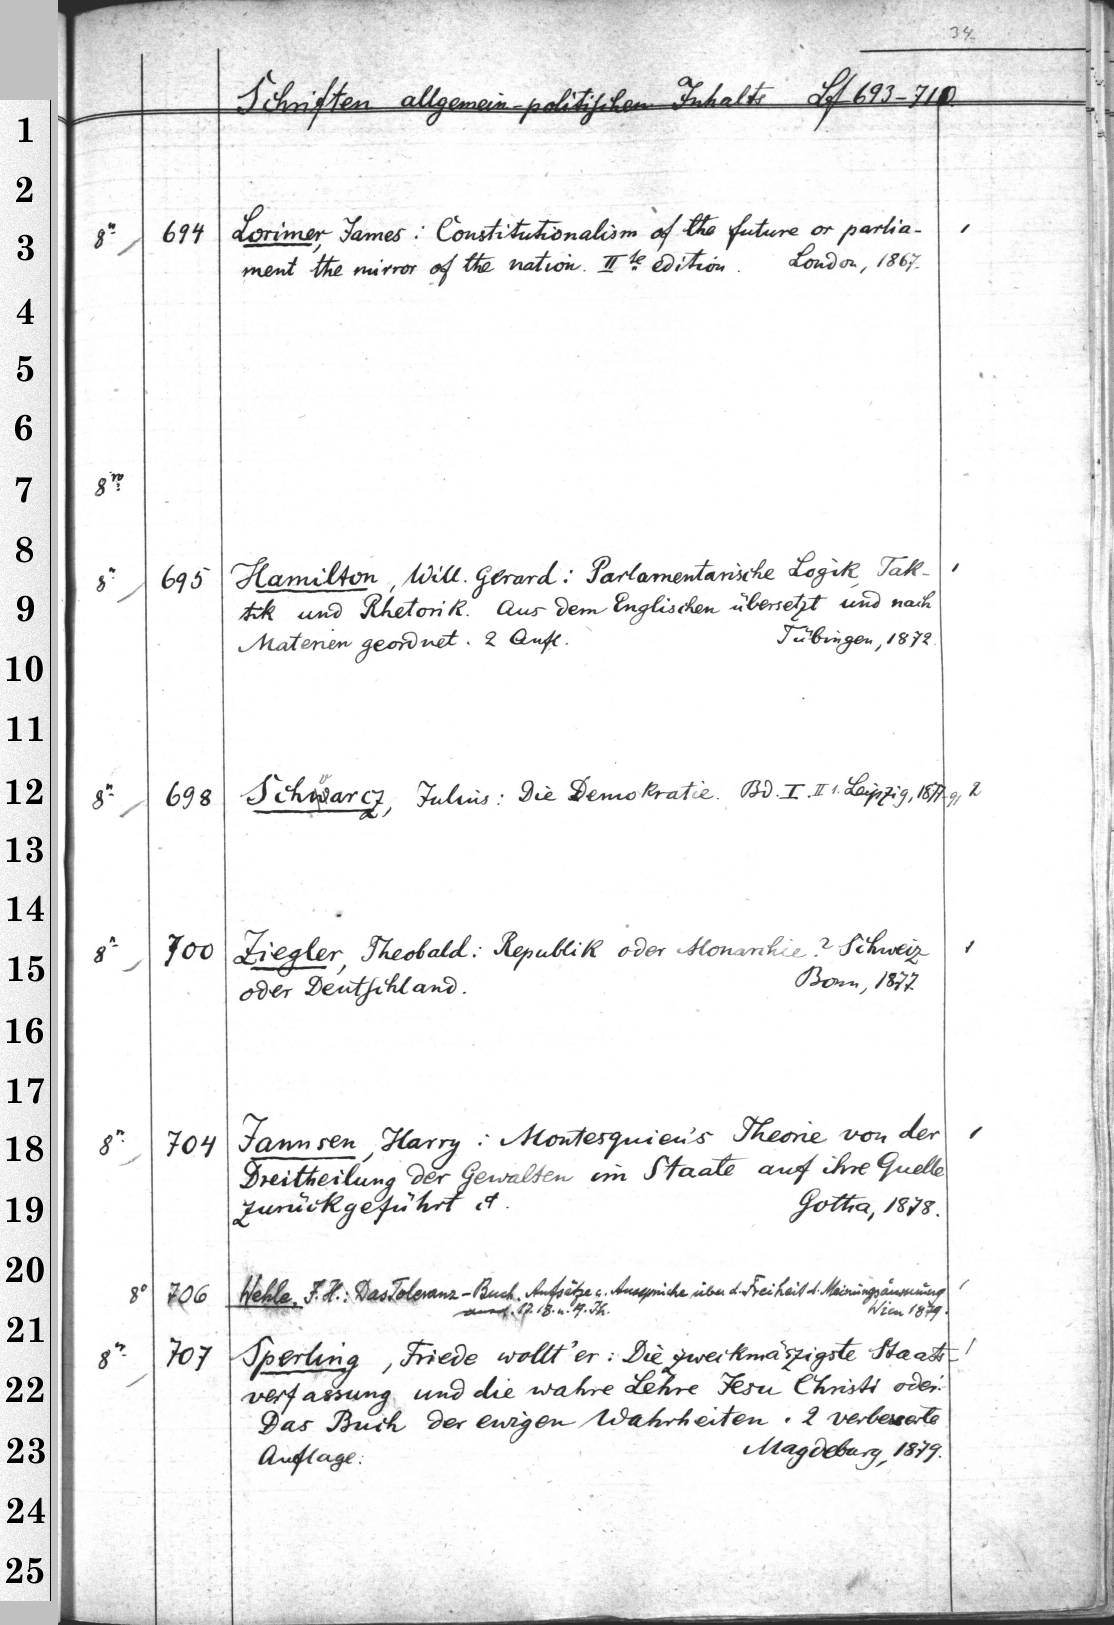 34.
Schriften allgemein-politischen Inhalts Lf 693-710.
1
2
8º 694 Lorimer, James: Constitutionalism of the future or parlia- 1
3
ment the mirror of the nation. II te edition. London, 1867.
4
5
6
7 8vo
8
8º 695 Hamilton, Will. Gerard: Parlamentarische Logik, Tak- 1
9
tik und Rhetorik. Aus dem Englischen übersetzt und nach
Materien geordnet. 2 Aufl. Tübingen, 1872.
10
11
12 8º 698 Schwarcz, Julius: Die Demokratie. Bd. I. II 1. Leipzig, 1877- 2
13
14
8º 700 Ziegler, Theobald: Republik oder Monarchie? Schweiz 1
15
oder Deutschland. Bonn, 1877.
16
17
18 8º 704 Jannsen, Harry: Montesquieu's Theorie von der 1
Dreitheilung der Gewalten im Staate auf ihre Quelle
19 zurückgeführt. Gotha, 1878.
20
8º 706 Wehle, J.H.: Das Toleranz-Buch. Aufsätze u. Aussprüche über d. Freiheit d. Meinungsäusserung 1
17. 18. u. 19. Jh. Wien 1879.
21
8º 707 Sperling, Friede wollt'er: Die zweikmäszigste Staats- 1
22 verfassung und die wahre Lehre Jesu Christi oder:
Das Buch der ewigen Wahrheiten. 2 verbesserte
23 Auflage. Magdeburg, 1879.
24
25